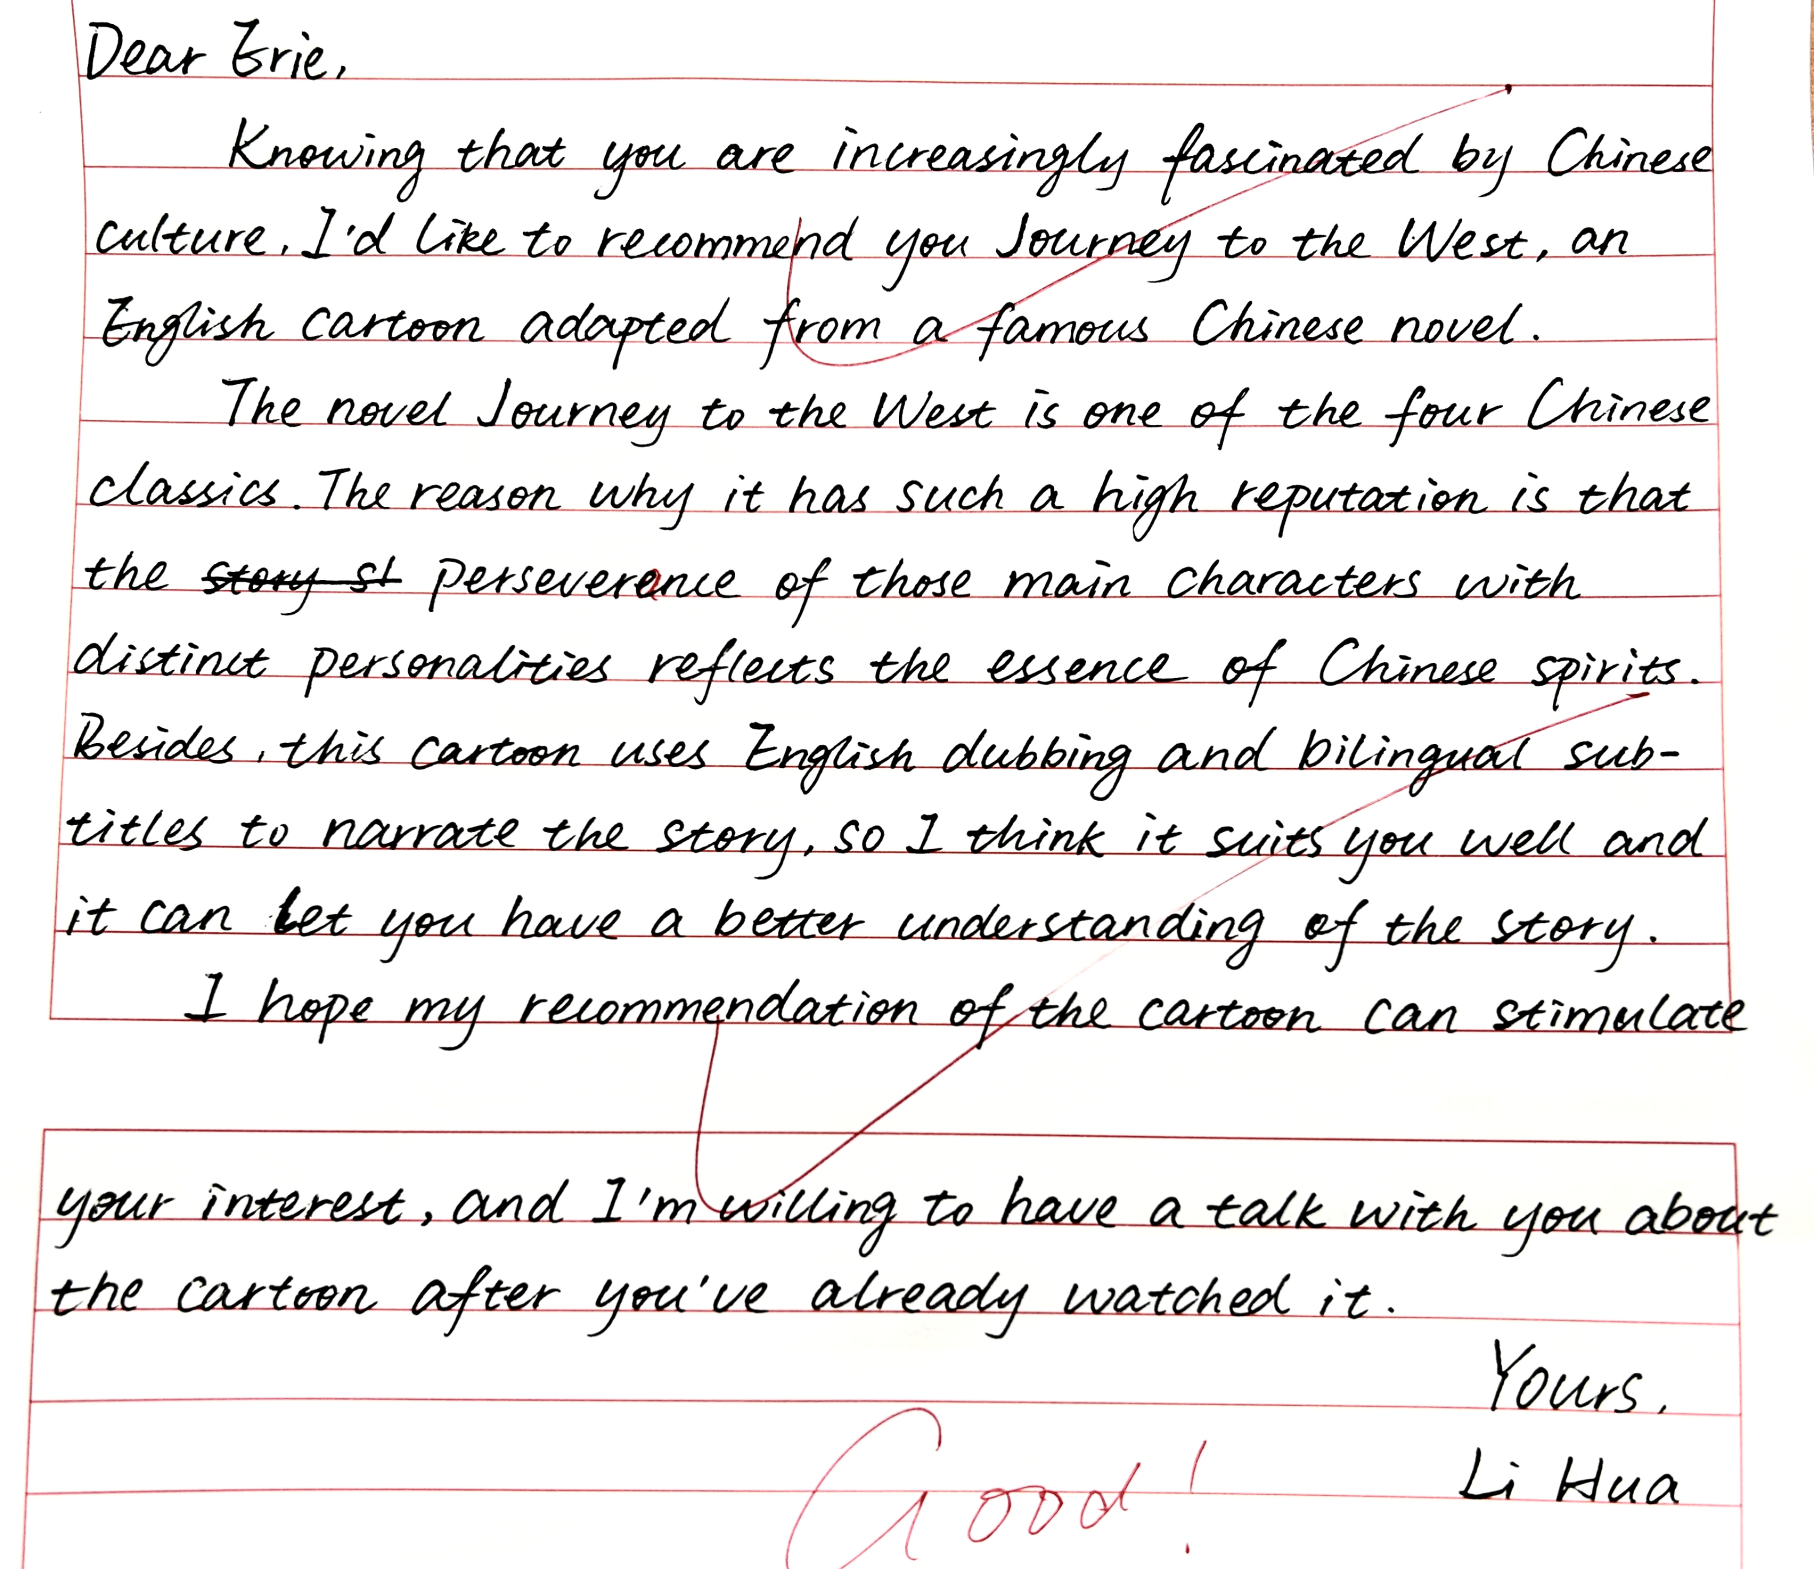 Dear Erie,
Knowing that you are increasingly fascinated by Chinese
culture, I'd like to recommend you Journey to the West, an
English cartoon adapted from a famous Chinese novel.
The novel Journey to the West is one of the four Chinese
classics. The reason why it has such a high reputation is that
the story st perseverance of those main characters with
distinct personalities reflects the essence of Chinese spirits.
Besides, this cartoon uses English dubbing and bilingual sub-
titles to narrate the story, so I think it suits you well and
it can let you have a better understanding of the story.
I hope my recommendation of the cartoon can stimulate
your interest, and I'm willing to have a talk with you about
the cartoon after you've already watched it.
Yours,
Li Hua
Good!